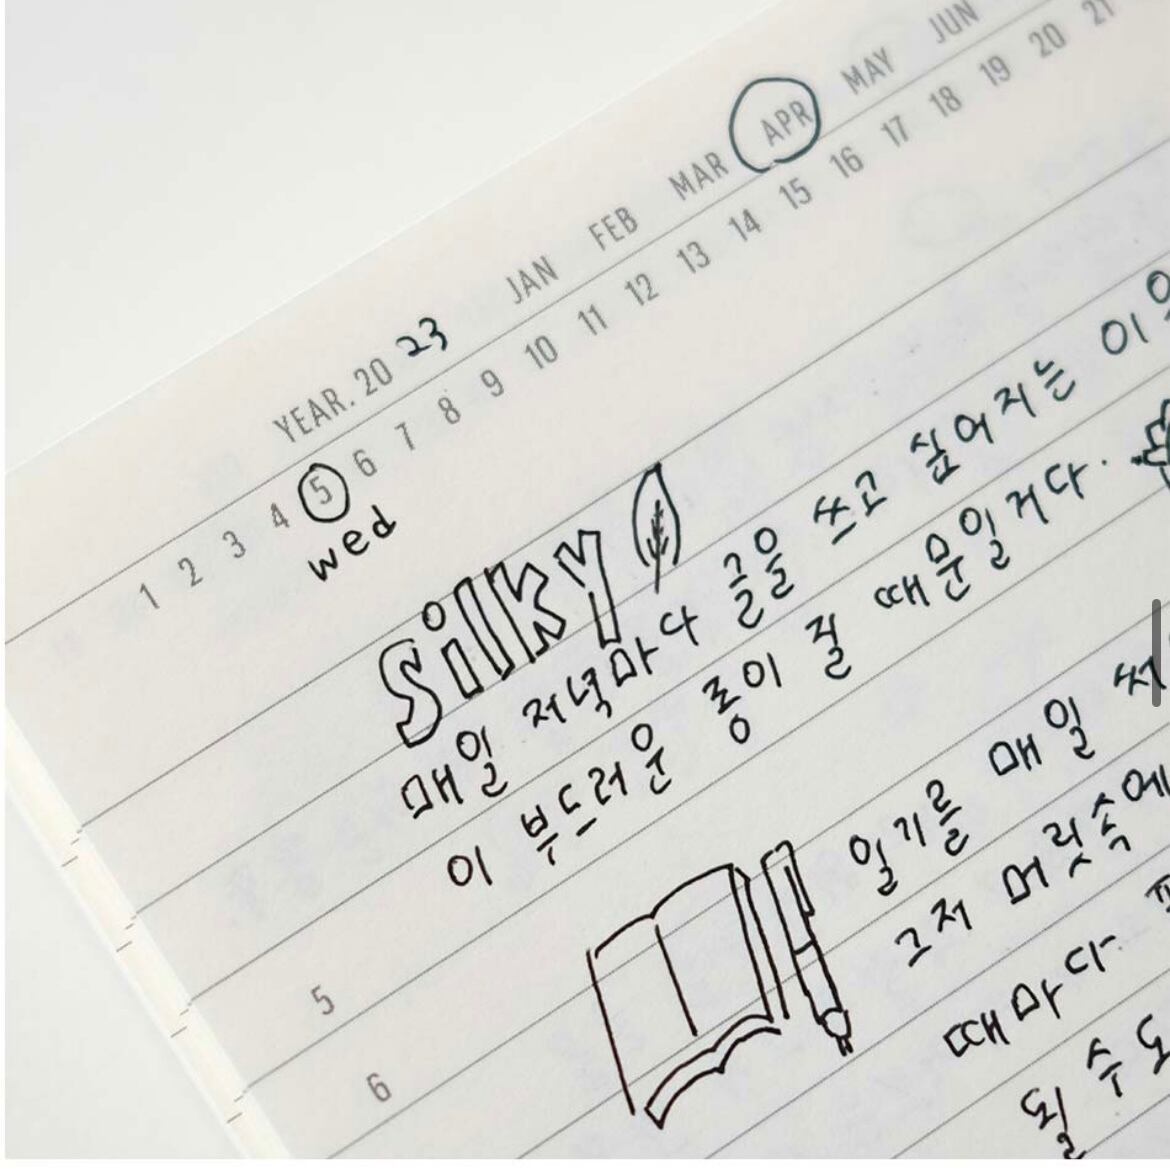 YEAR. 20 23 JAN FEB MAR APR MAY JUN
1 2 3 4 5 6 7 8 9 10 11 12 13 14 15 16 17 18 19 20 21
wed
silky
매일 저녁마다 글을 쓰고 싶어지는
이 부드러운 종이 질 때문일거다.
일기를 매일
그저 머릿속에
5
때마다
6
될 수도